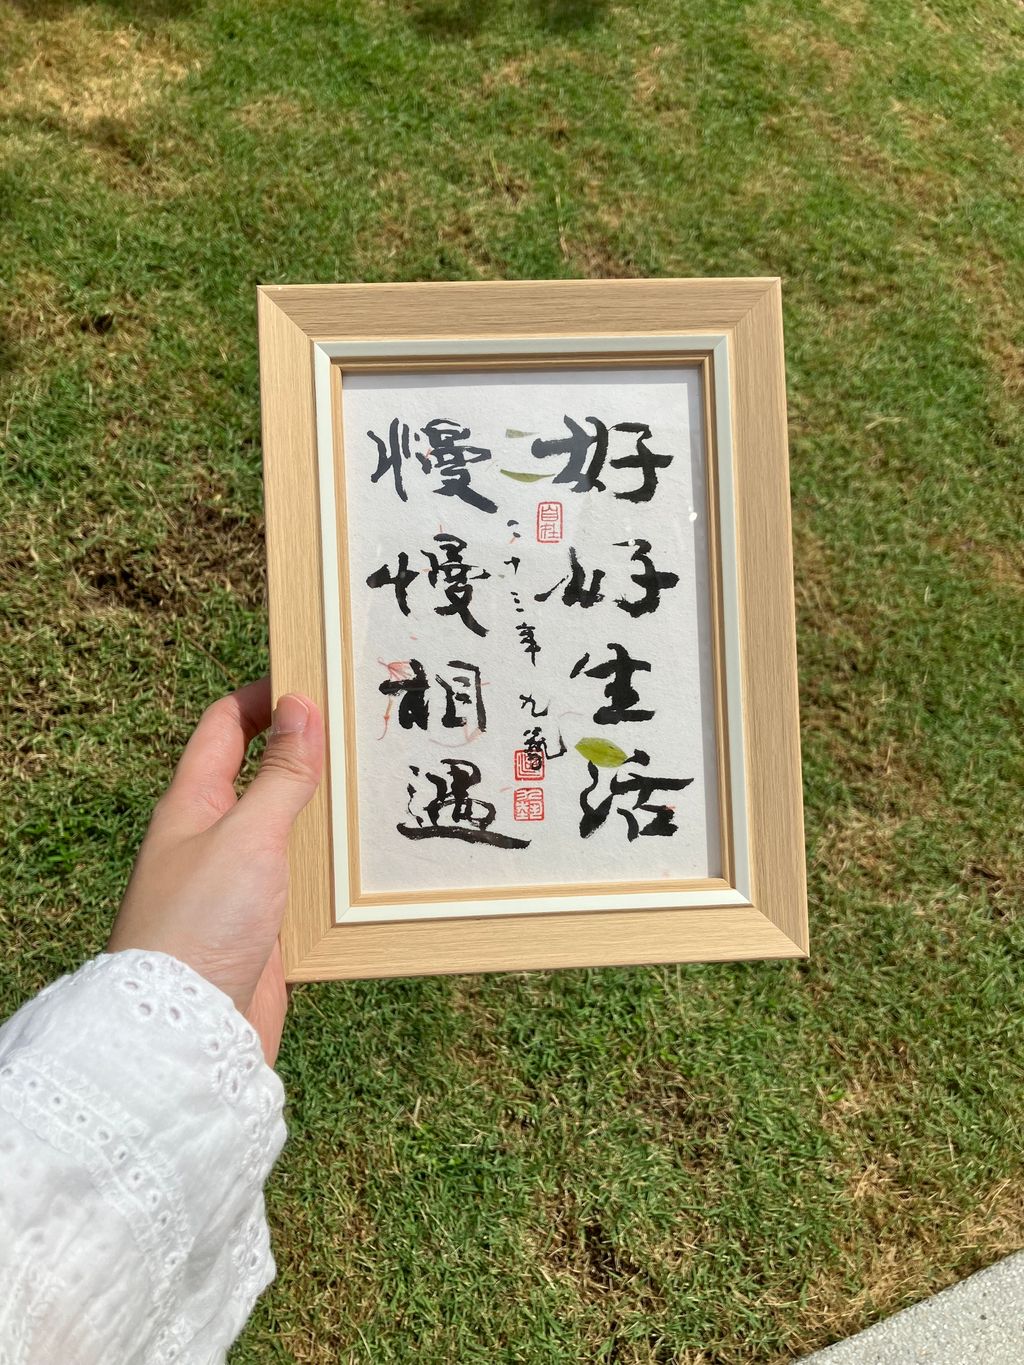 好好生活
慢慢相遇
二十三年 九藝